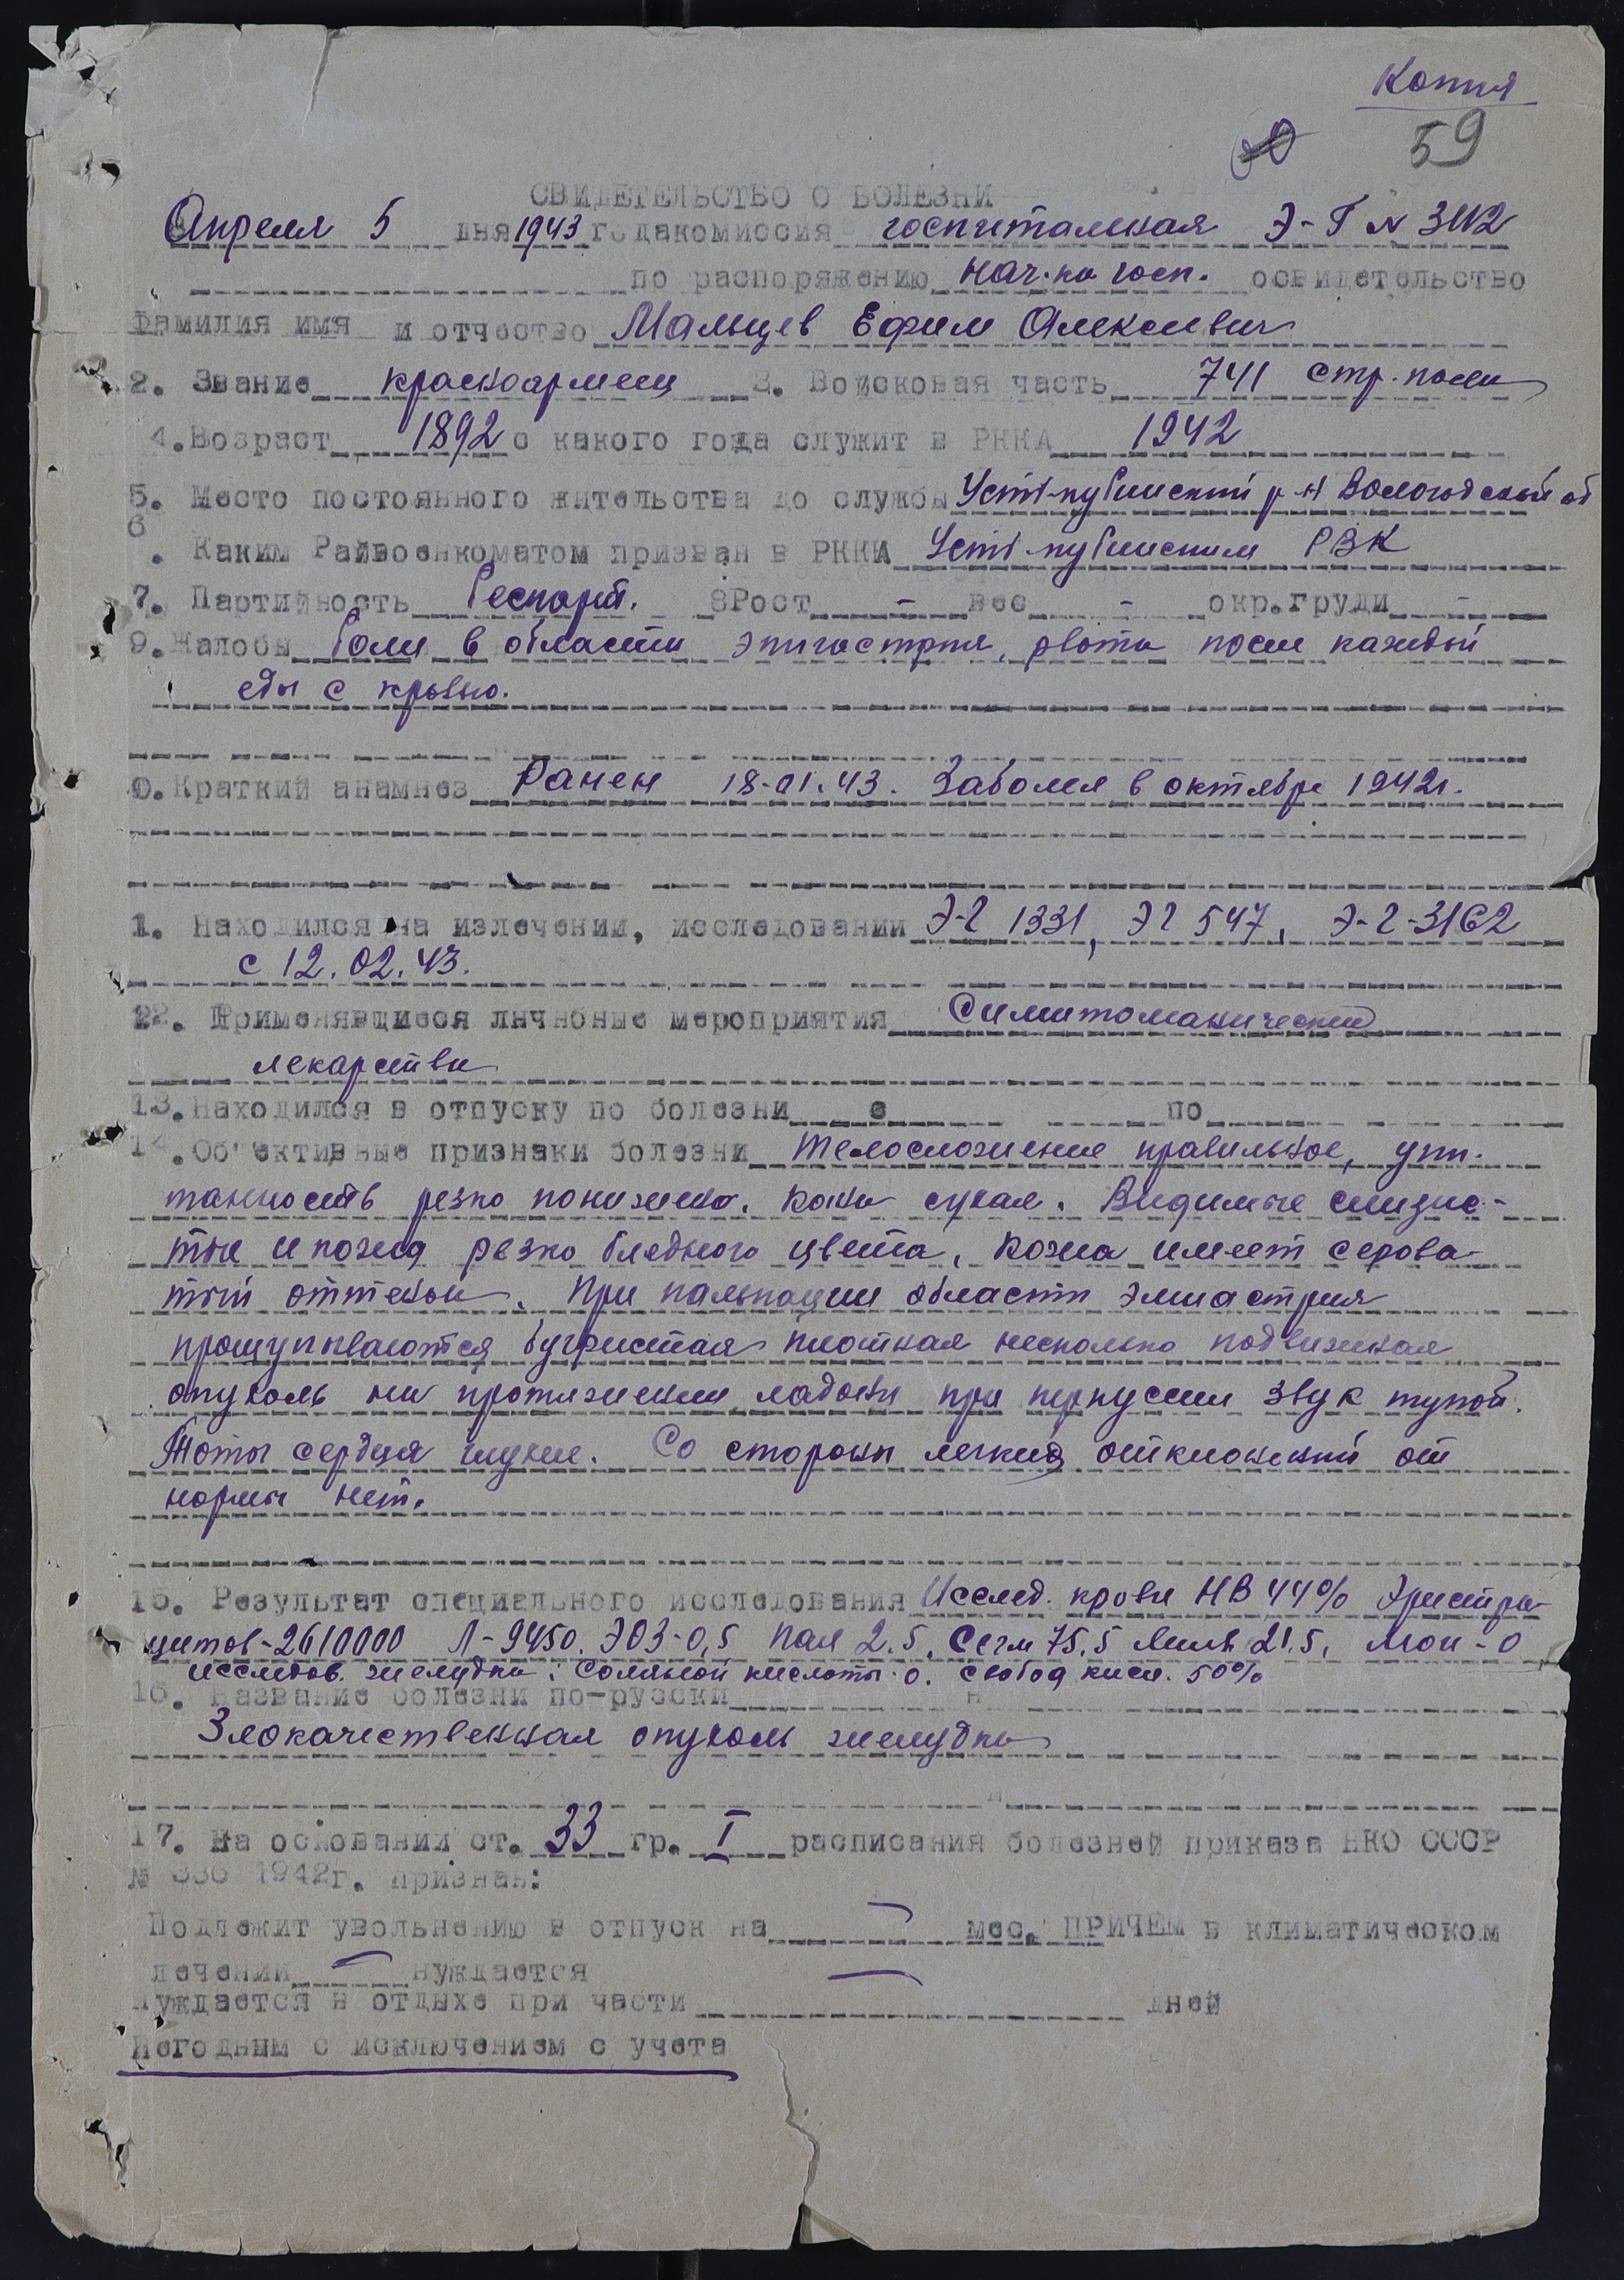 Копия
59
СВИДЕТЕЛЬСТВО О БОЛЕЗНИ
Апреля 5 дня 1943 года комиссия госпитальная Э-Г №
по распоряжению нач-ка госп. освидетельство
Фамилия имя и отчество Мальцев Ефим Алексеевич
2. Звание красноармеец 3. Войсковая часть 741 стр. полк
4. Возраст 1892 с какого года служит в РККА 1942
5. Место постоянного жительства до службы Усть-кубинский р-н Вологодской об
6
. Каким Райвоенкоматом призван в РККА Усть-кубинским РВК
7. Партийность беспарт. 8 Рост - вес - окр. груди -
9. Жалобы боли в области эпигастрия, рвота после каждой
еды с кровью.
0. Краткий анамнез Ранен 18.01.43. Заболел в октябре 1942г.
1. Находился на излечении, исследовании Э-Г 1331, ЭГ 547, Э-Г-3162
с 12.02.43.
12. Применявшиеся личебные мероприятия
лекарства
13. Находился в отпуску по болезни с по
14. Об'ективные признаки болезни Телосложение правильное, упи-
танность резко понижена. Кожа сухая. Видимые слизис-
тые и кожа резко бледного цвета, кожа имеет серова-
тый оттенок. При пальпации области
прощупываются бугристая плотная несколько подвижная
опухоль на протяжении ладони при перкуссии звук тупой.
Тоны сердца глухие. Со стороны легких отклонений от
нормы нет.
15. Результат специального исследования Исслед. крови НВ 44% Эристро-
цитов-2610000 Л-9450. ЭОЗ-0,5 Пал 2.5, Сегм 75,5 Лимф 21.5, Мон-0
исследов. желудка: соляной кислоты-0. свобод кисл. 50%
16. Название болезни по-русски
Злокачественная опухоль желудка
17. На основании ст. 33 гр. I расписания болезней приказа НКО СССР
№ 336 1942г. признан:
Подлежит увольнению в отпуск на — мес. ПРИЧЕМ в климатическом
лечении — нуждается
Нуждается в отдыхе при части — дней
Негодным с исключением с учета